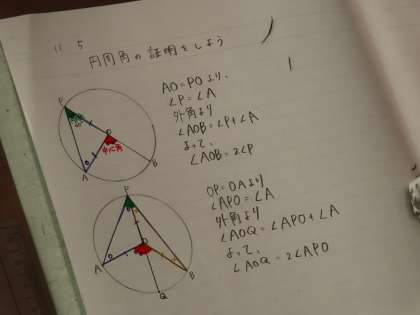 11 5
円周角の証明をしよう
AO=POより、
∠P=∠A
外角より
∠AOB=∠P+∠A
よって、
∠AOB=2∠P
P
O
中心角
A
B
OP=OAより
∠APO=∠A
外角より
∠AOQ=∠APO+∠A
よって、
∠AOQ=2∠APO
P
O
A
B
Q